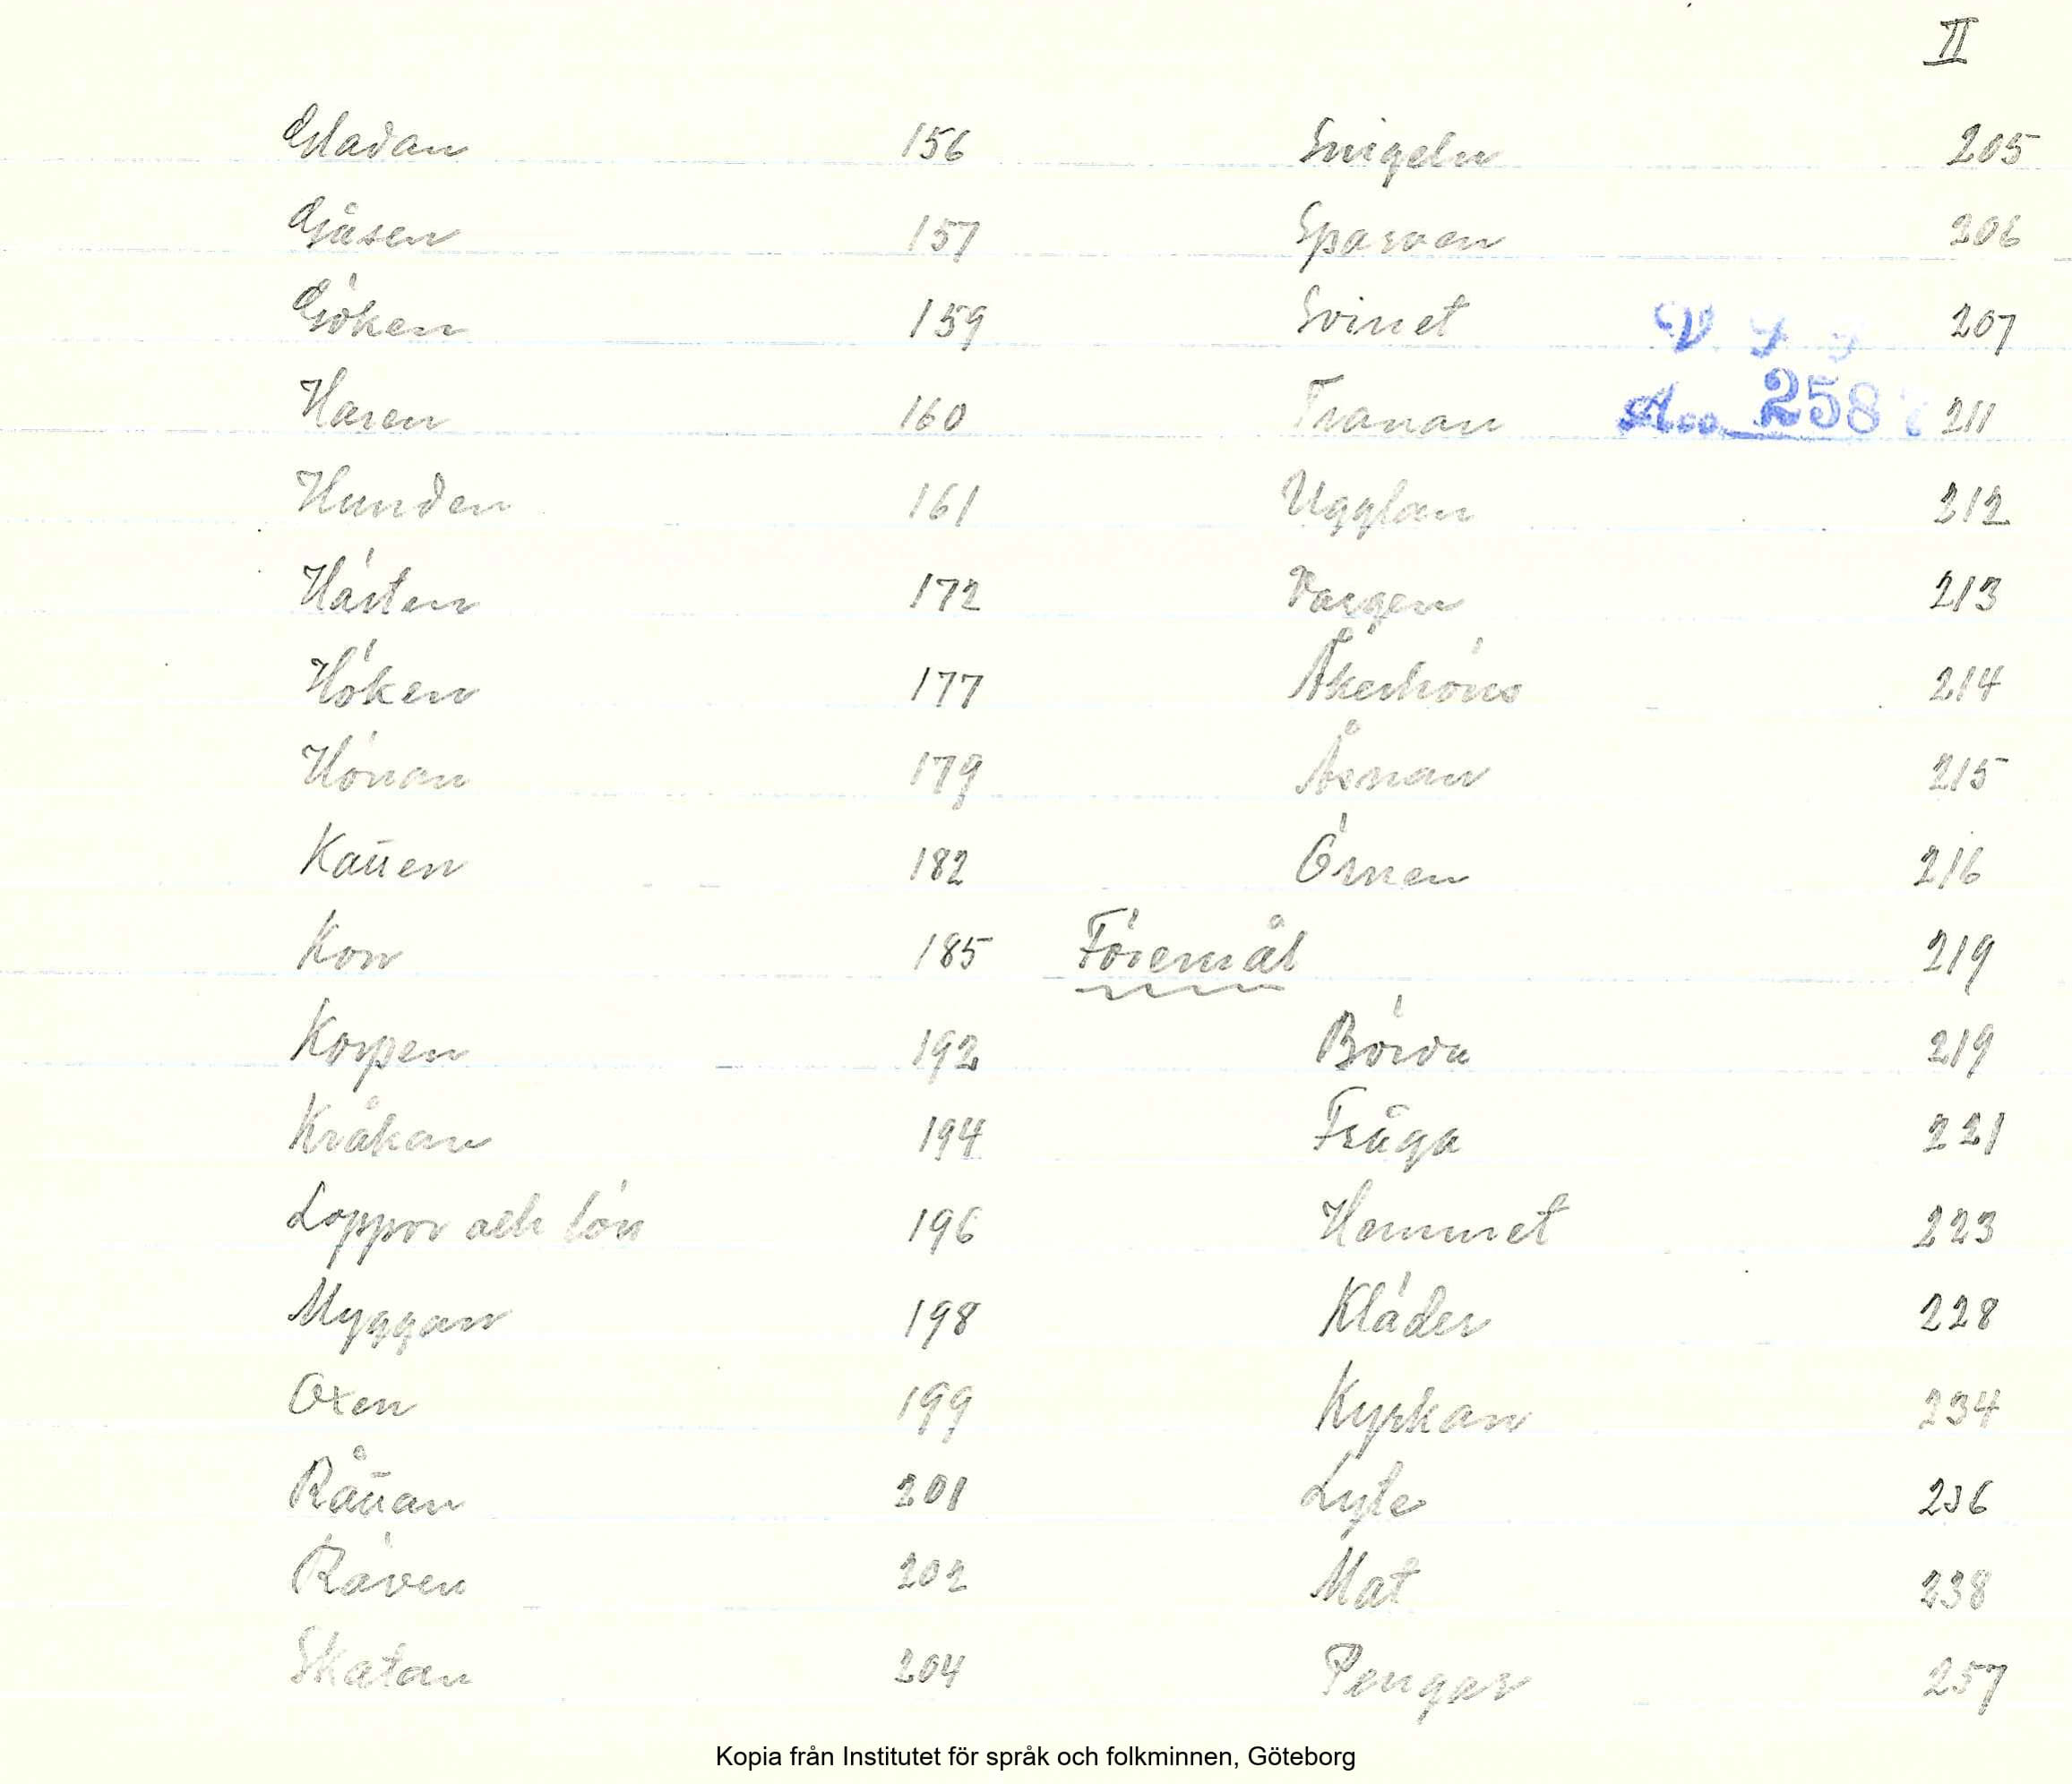 II
Gladan 156
Gåsen 157
Göken 159
Haren 160
Hunden 161
Hästen 172
Höken 177
Hönan 179
Katten 182
Kon 185
Korpen 192
Kråkan 194
Loppor och lös 196
Myggan 198
Oxen 199
Råttan 201
Räven 202
Skatan 204
Snigeln 205
Sparven 206
Svinet 207
Tranan 211
Ugglan 212
Vargen 213
Åkerhöns 214
Åsnan 215
Örnen 216
Föremål 219
Börda 219
Fråga 221
Hemmet 223
Kläder 228
Kyrkan 234
Lyte 236
Mat 238
Pengar 257
Acc. 258
Kopia från Institutet för språk och folkminnen, Göteborg